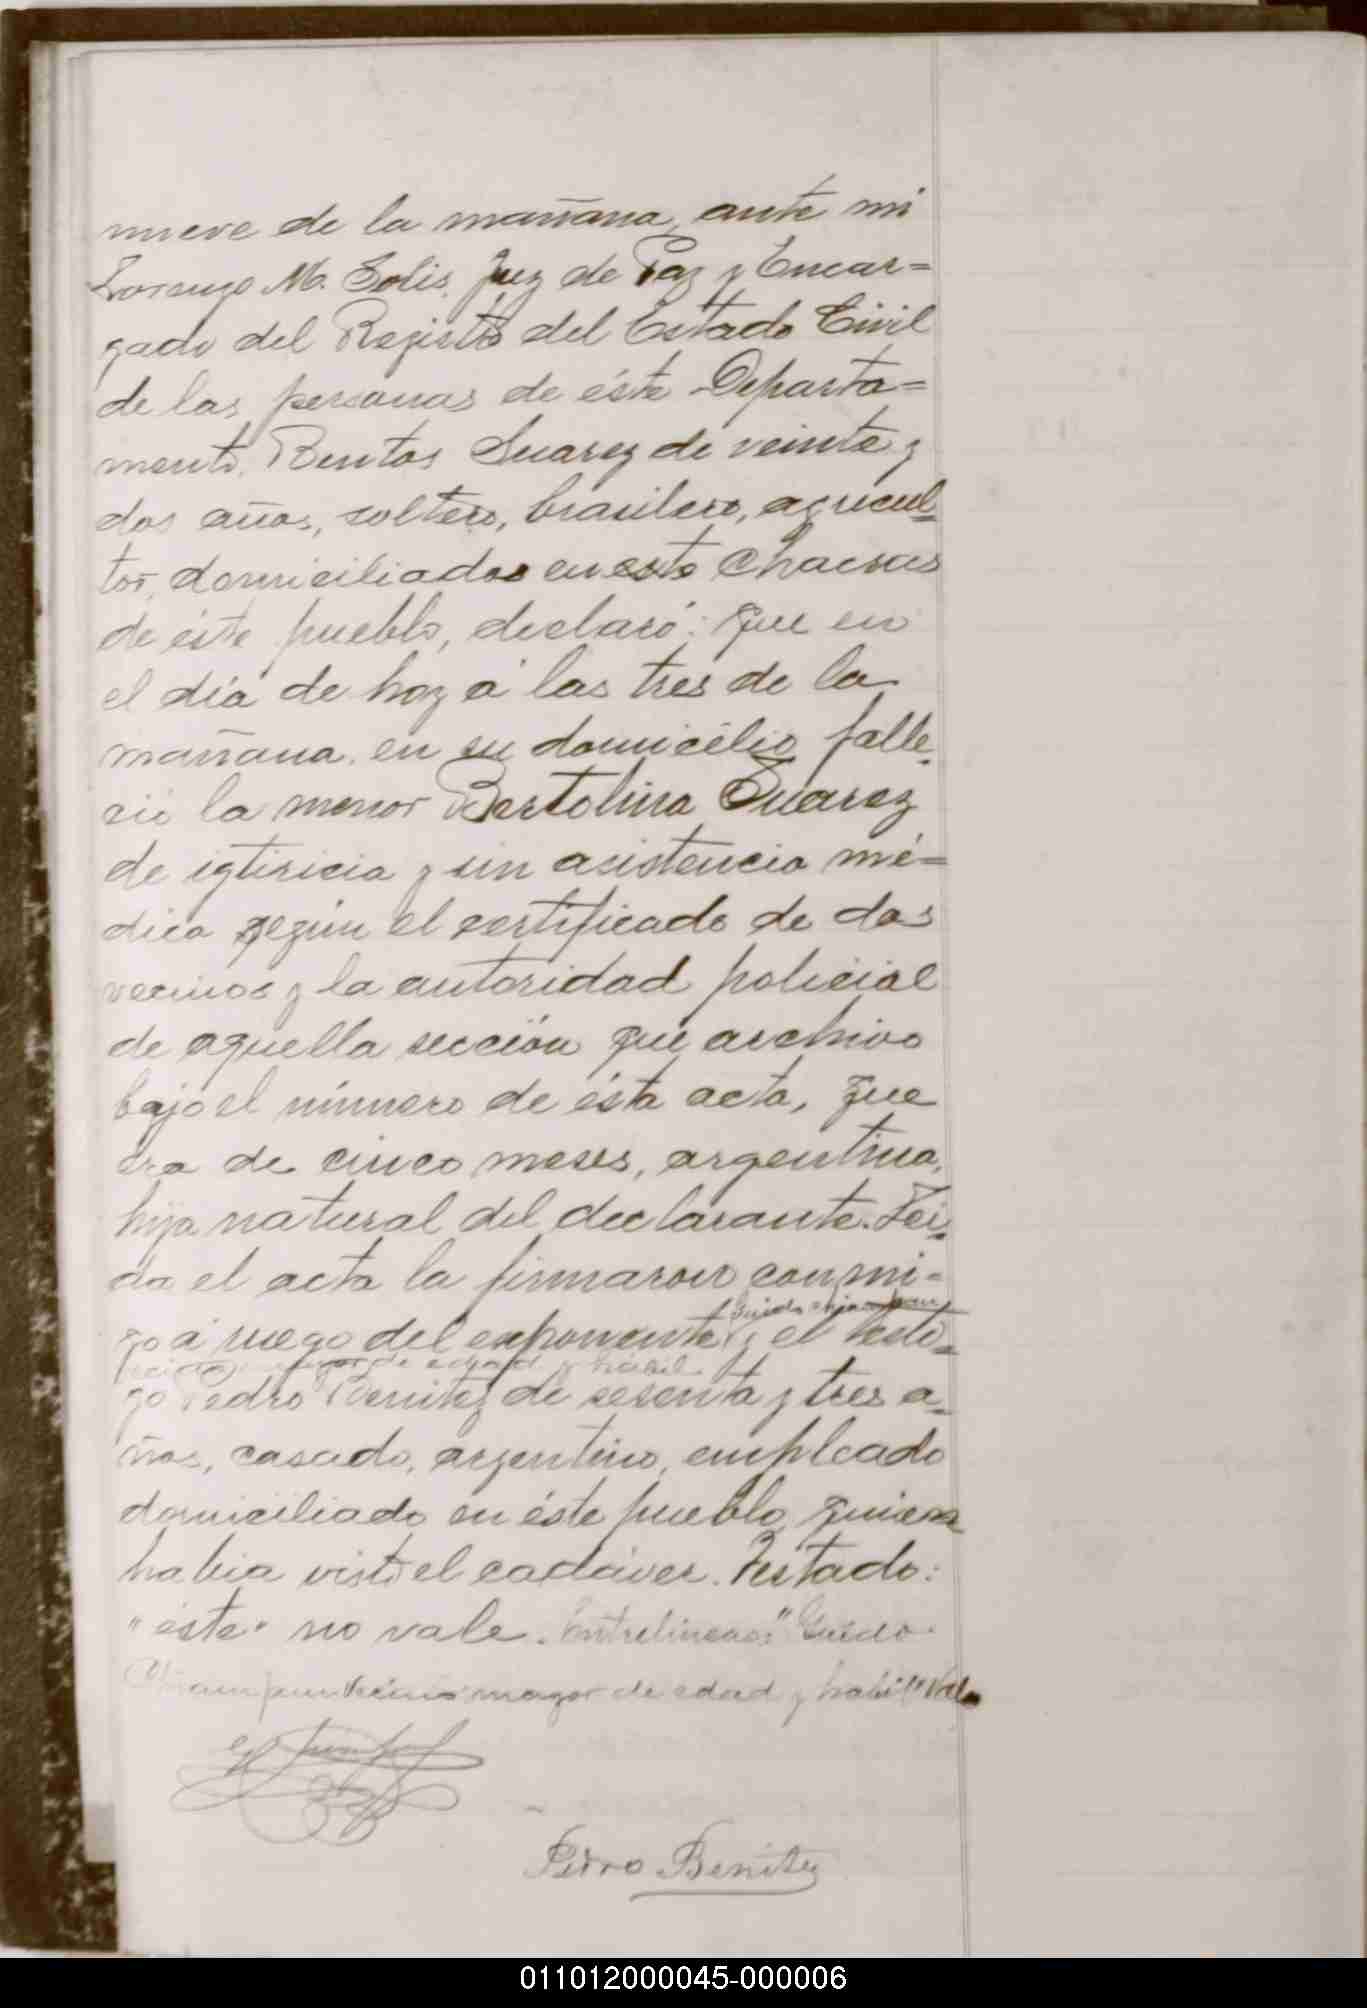 nueve de la mañana, ante mi
Lorenzo M. Solis, Juez de Paz y Encar=
gado del Registro del Estado Civil
de las personas de éste Departa=
mento, Bentos Suarez de veinte y
dos años, soltero, brasilero, agricul-
tor, domiciliado en este Chacras
de éste pueblo, declaró: que en
el día de hoy á las tres de la
mañana, en su domicilio falle-
ció la menor Bertolina Suarez
de igtiricia y sin asistencia mé=
dica según el certificado de dos
vecinos y la autoridad policial
de aquella sección que archivo
bajo el número de ésta acta, que
era de cinco meses, argentina,
hija natural del declarante. Lei-
da el acta la firmaron conmi-
Guido
go á ruego del exponente y el testi-
vecino mayor de edad y hábil
go Pedro Benitez de sesenta y tres a-
ños, casado, argentino, empleado
domiciliado en éste pueblo, quienes
habia visto el cadáver. Testado:
"éste" no vale. Entrelineas: "Guido
vecino mayor de edad y habil" Vale
Pedro Benitez
011012000045-000006